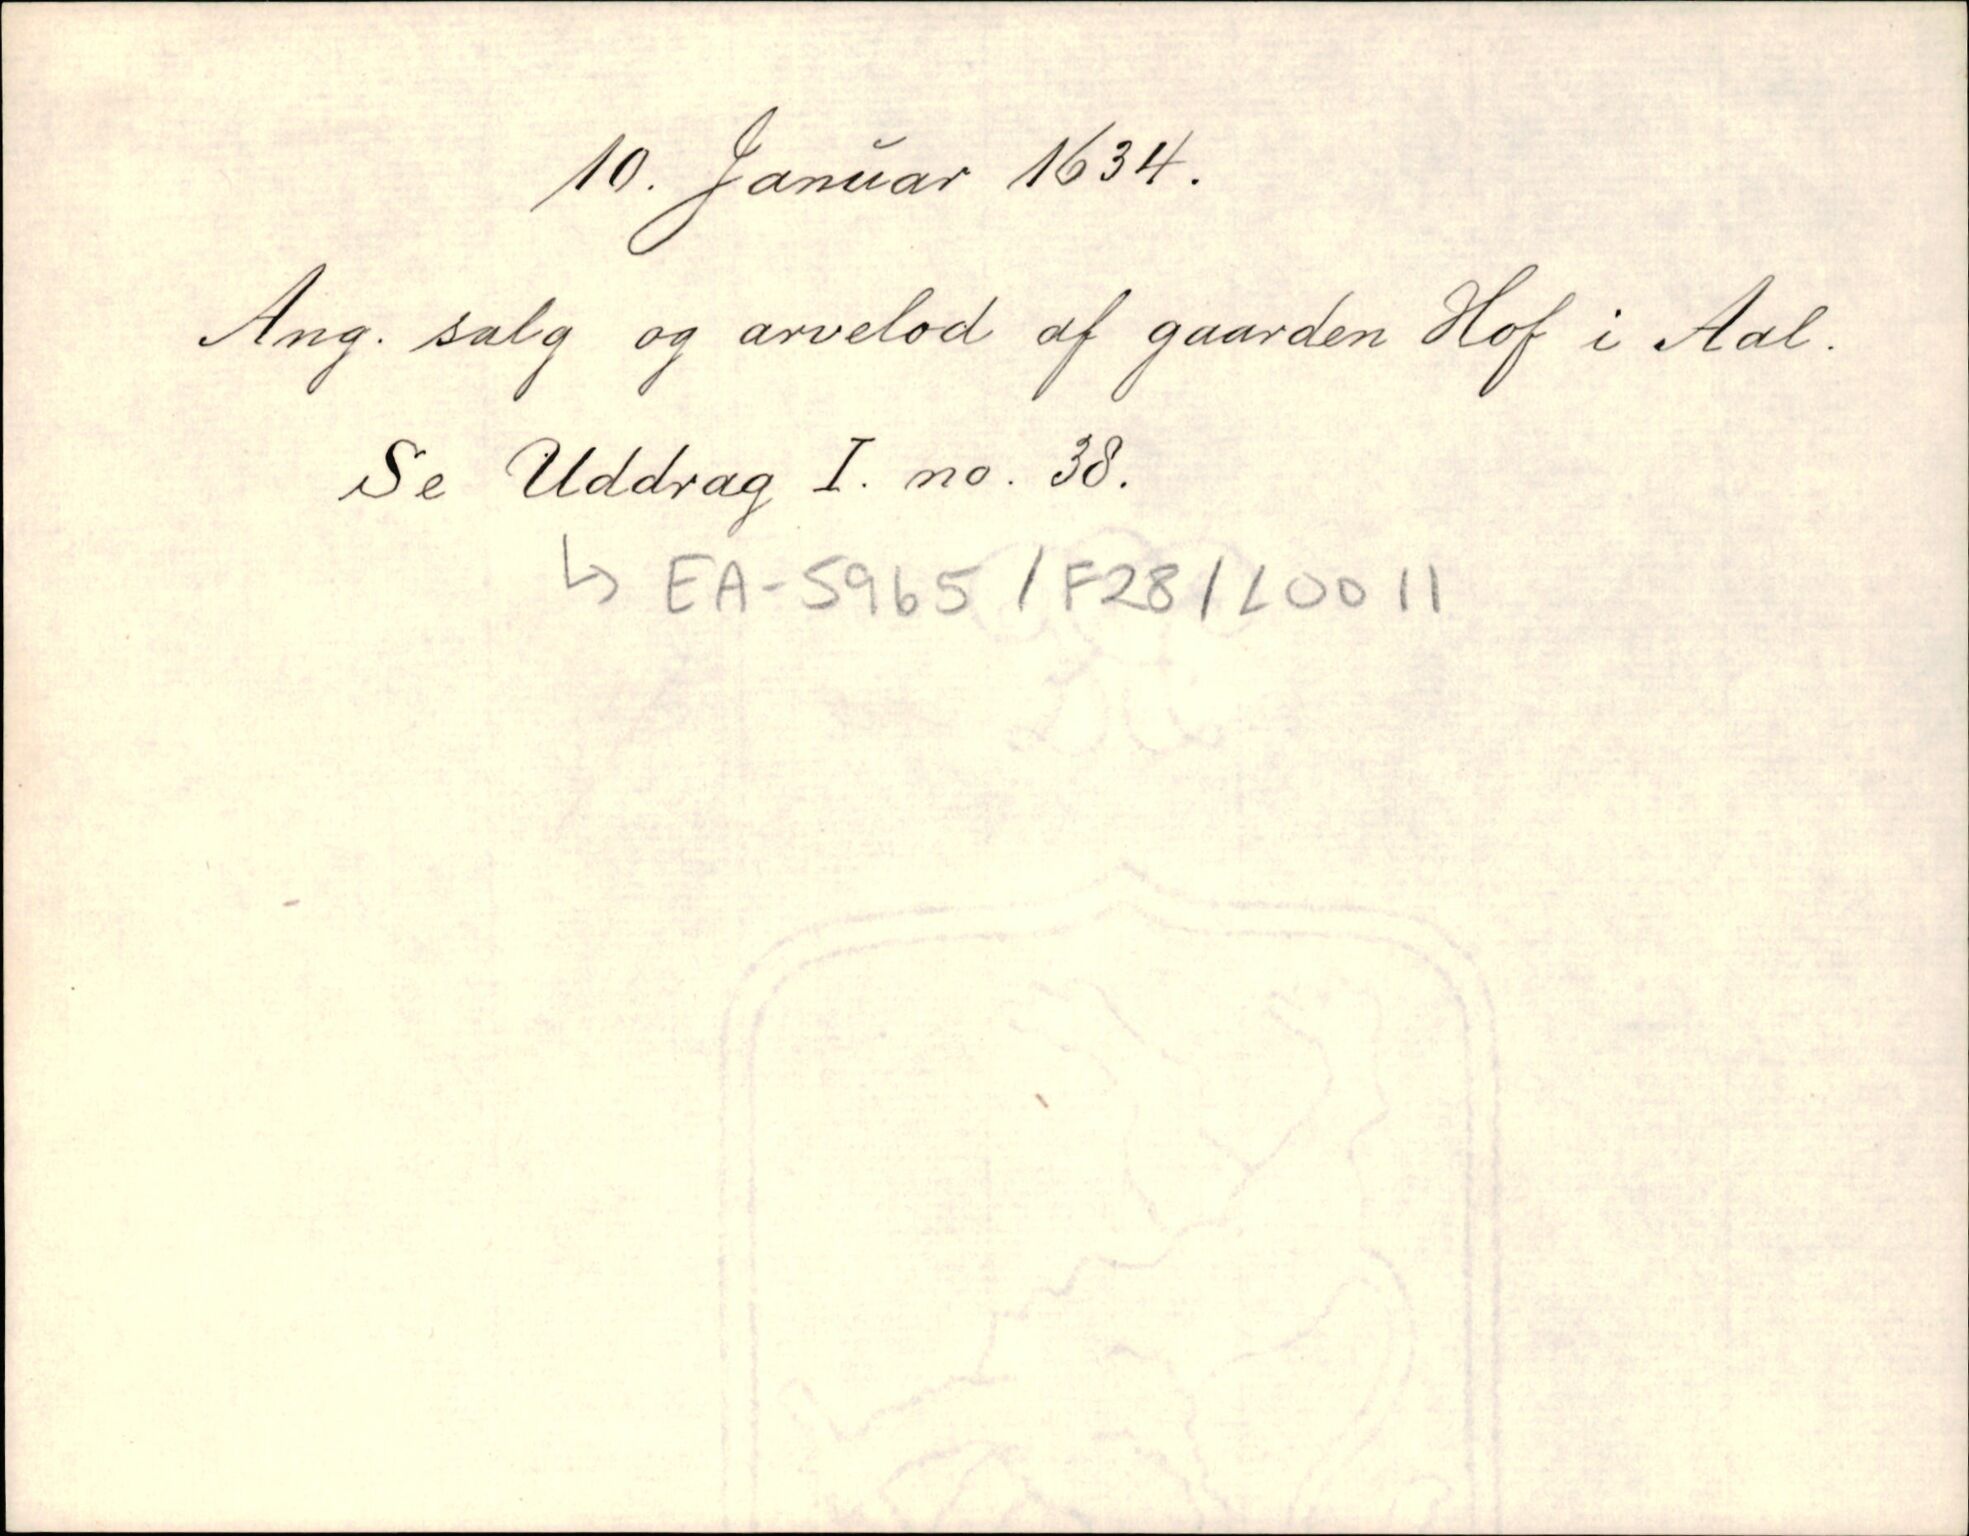 10. Januar 1634.
Ang. salg og arvelod af gaarden Hof i Aal.
Se Uddrag I. no. 38.
↳ EA-5965/F28/L0011